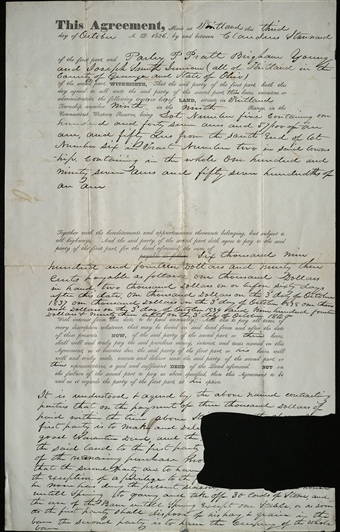 This Agreement, Made at Kirtland the third
day of October A. D. 1836, by and between Claudius Stannard
of the first part and Parley P Pratt Brigham Young
and Joseph Smith Junior (all of Kirtland in the
County of Geauga and State of Ohio)
of the second part, WITNESSETH, That the party of the first part hath this
day agreed to sell unto the party of the second part
LAND, situate in Kirtland
Township number Nine in the Ninth Range, in the
Connecticut Western Reserve, being Lot Number five Containing one
hundred and forty seven acres and 57/100 of an
acre, and fifty acres from the South End of Lot
Number Six in Tract Number two in said town
ship, Containing in the whole One hundred and
ninety seven acres and fifty seven hundredths of
an acre
Together with the hereditaments and appurtenances thereunto belonging, but subject to
all highways. And the said party of the second part agree to pay to the said
party of the first part for the land aforesaid, the sum of
Six thousand nine
hundred and fourteen Dollars and ninety three
Cents payable as follows one thousand Dollars
in hand, two thousand Dollars on or before sixty days
after this date, one thousand Dollars on the 3d day of October
1837 one thousand Dollars on the 3d day of October 1838 one thous
and Dollars on the 3d day of October 1839 & Nine hundred fourteen
Dollars & ninety three Cents on the 3d day of October 1840
With interest from the date, to be paid annually
every description whatever, that may be found on said land from and after the date
of these presents. NOW, if the said party of the second part, or their heirs,
shall well and truly pay the said purchase money, interest, and taxes named in this
Agreement, as it becomes due, the said party of the first part, or his heirs, will
well and truly make, execute and deliver unto the said party of the second part, or
their representatives, a good and sufficient DEED of the Land aforesaid. BUT on
the failure of the second part to pay as above specified, then this Agreement to be
void as it regards the party of the first part, at his option.
It is understood & agreed by the above named contracting
parties that on the payment of three thousand Dollars of
paid within the time above
first party is to make and
good Warrantee Deed, and the
the said Land to the first party
of the remaining purchase
that the second party are to have
the exception of a privilege
he now lives in at the present
until Spring to quarry and take off 30 Cords of Stone, and
the use of the Barn until Spring except one Stable, or as soon
as the first party shall dispose of his hay & grain in the
barn the second party is to have the Occupancy of the whole